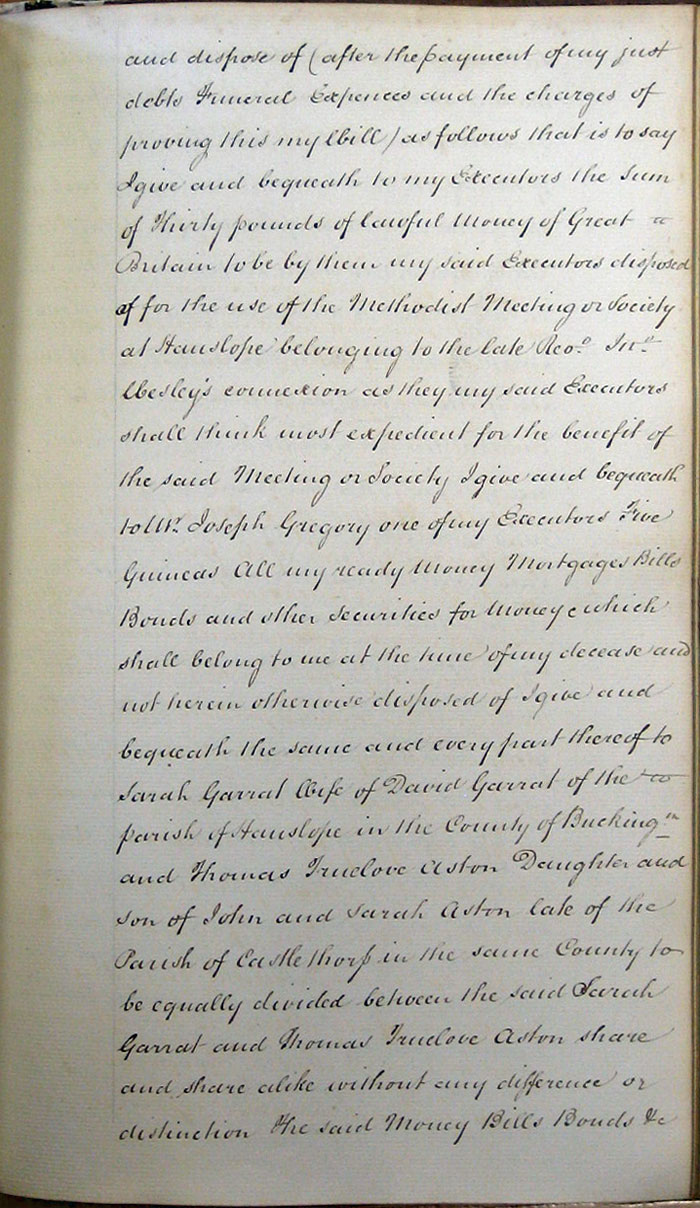 and dispose of (after the payment of my just
debts Funeral Expences and the charges of
proving this my Will) as follows that is to say
I give and bequeath to my Executors the Sum
of Thirty pounds of lawful Money of Great
Britain to be by them my said Executors disposed
of for the use of the Methodist Meeting or Society
at Hanslope belonging to the late Revd. Jno.
Wesley's connexion as they my said Executors
shall think most expedient for the benefit of
the said Meeting or Society I give and bequeath
to Mr. Joseph Gregory one of my Executors Five
Guineas All my ready Money Mortgages Bills
Bonds and other Securities for Money which
shall belong to me at the time of my decease and
not herein otherwise disposed of I give and
bequeath the same and every part thereof to
Sarah Garrat Wife of David Garrat of the
parish of Hanslope in the County of Buckingm
and Thomas Truelove Aston Daughter and
son of John and Sarah Aston late of the
Parish of Castlethorp in the same County to
be equally divided between the said Sarah
Garrat and Thomas Truelove Aston share
and share alike without any difference or
distinction The said Money Bills Bonds &c